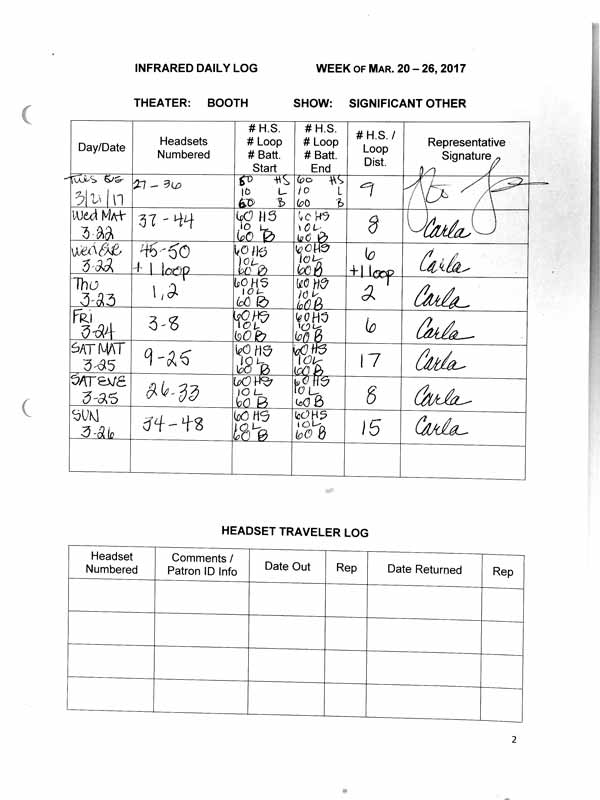 INFRARED DAILY LOG WEEK OF MAR. 20 – 26, 2017
THEATER: BOOTH SHOW: SIGNIFICANT OTHER
Day/Date Headsets Numbered # H.S. # Loop # Batt. Start # H.S. # Loop # Batt. End # H.S. / Loop Dist. Representative Signature
Tues Eve 3/21/17 27-36 60 HS 10 L 60 B 60 HS 10 L 60 B 9
Wed MAT 3-22 37-44 60 HS 10 L 60 B 60 HS 10 L 60 B 8 Carla
Wed EVE 3-22 45-50 +1 loop 60 HS 10L 60 B 60HS 10L 60B 6 +1 loop Carla
THU 3-23 1,2 60 HS 10L 60 B 60HS 10L 60B 2 Carla
FRI 3-24 3-8 60 HS 10L 60 B 60HS 10L 60B 6 Carla
SAT MAT 3-25 9-25 60 HS 10L 60 B 60HS 10L 60B 17 Carla
SAT EVE 3-25 26-33 60 HS 10L 60 B 60 HS 10L 60B 8 Carla
SUN 3-26 34-48 60 HS 10L 60 B 60HS 10L 60 B 15 Carla
HEADSET TRAVELER LOG
Headset Numbered Comments / Patron ID Info Date Out Rep Date Returned Rep
2